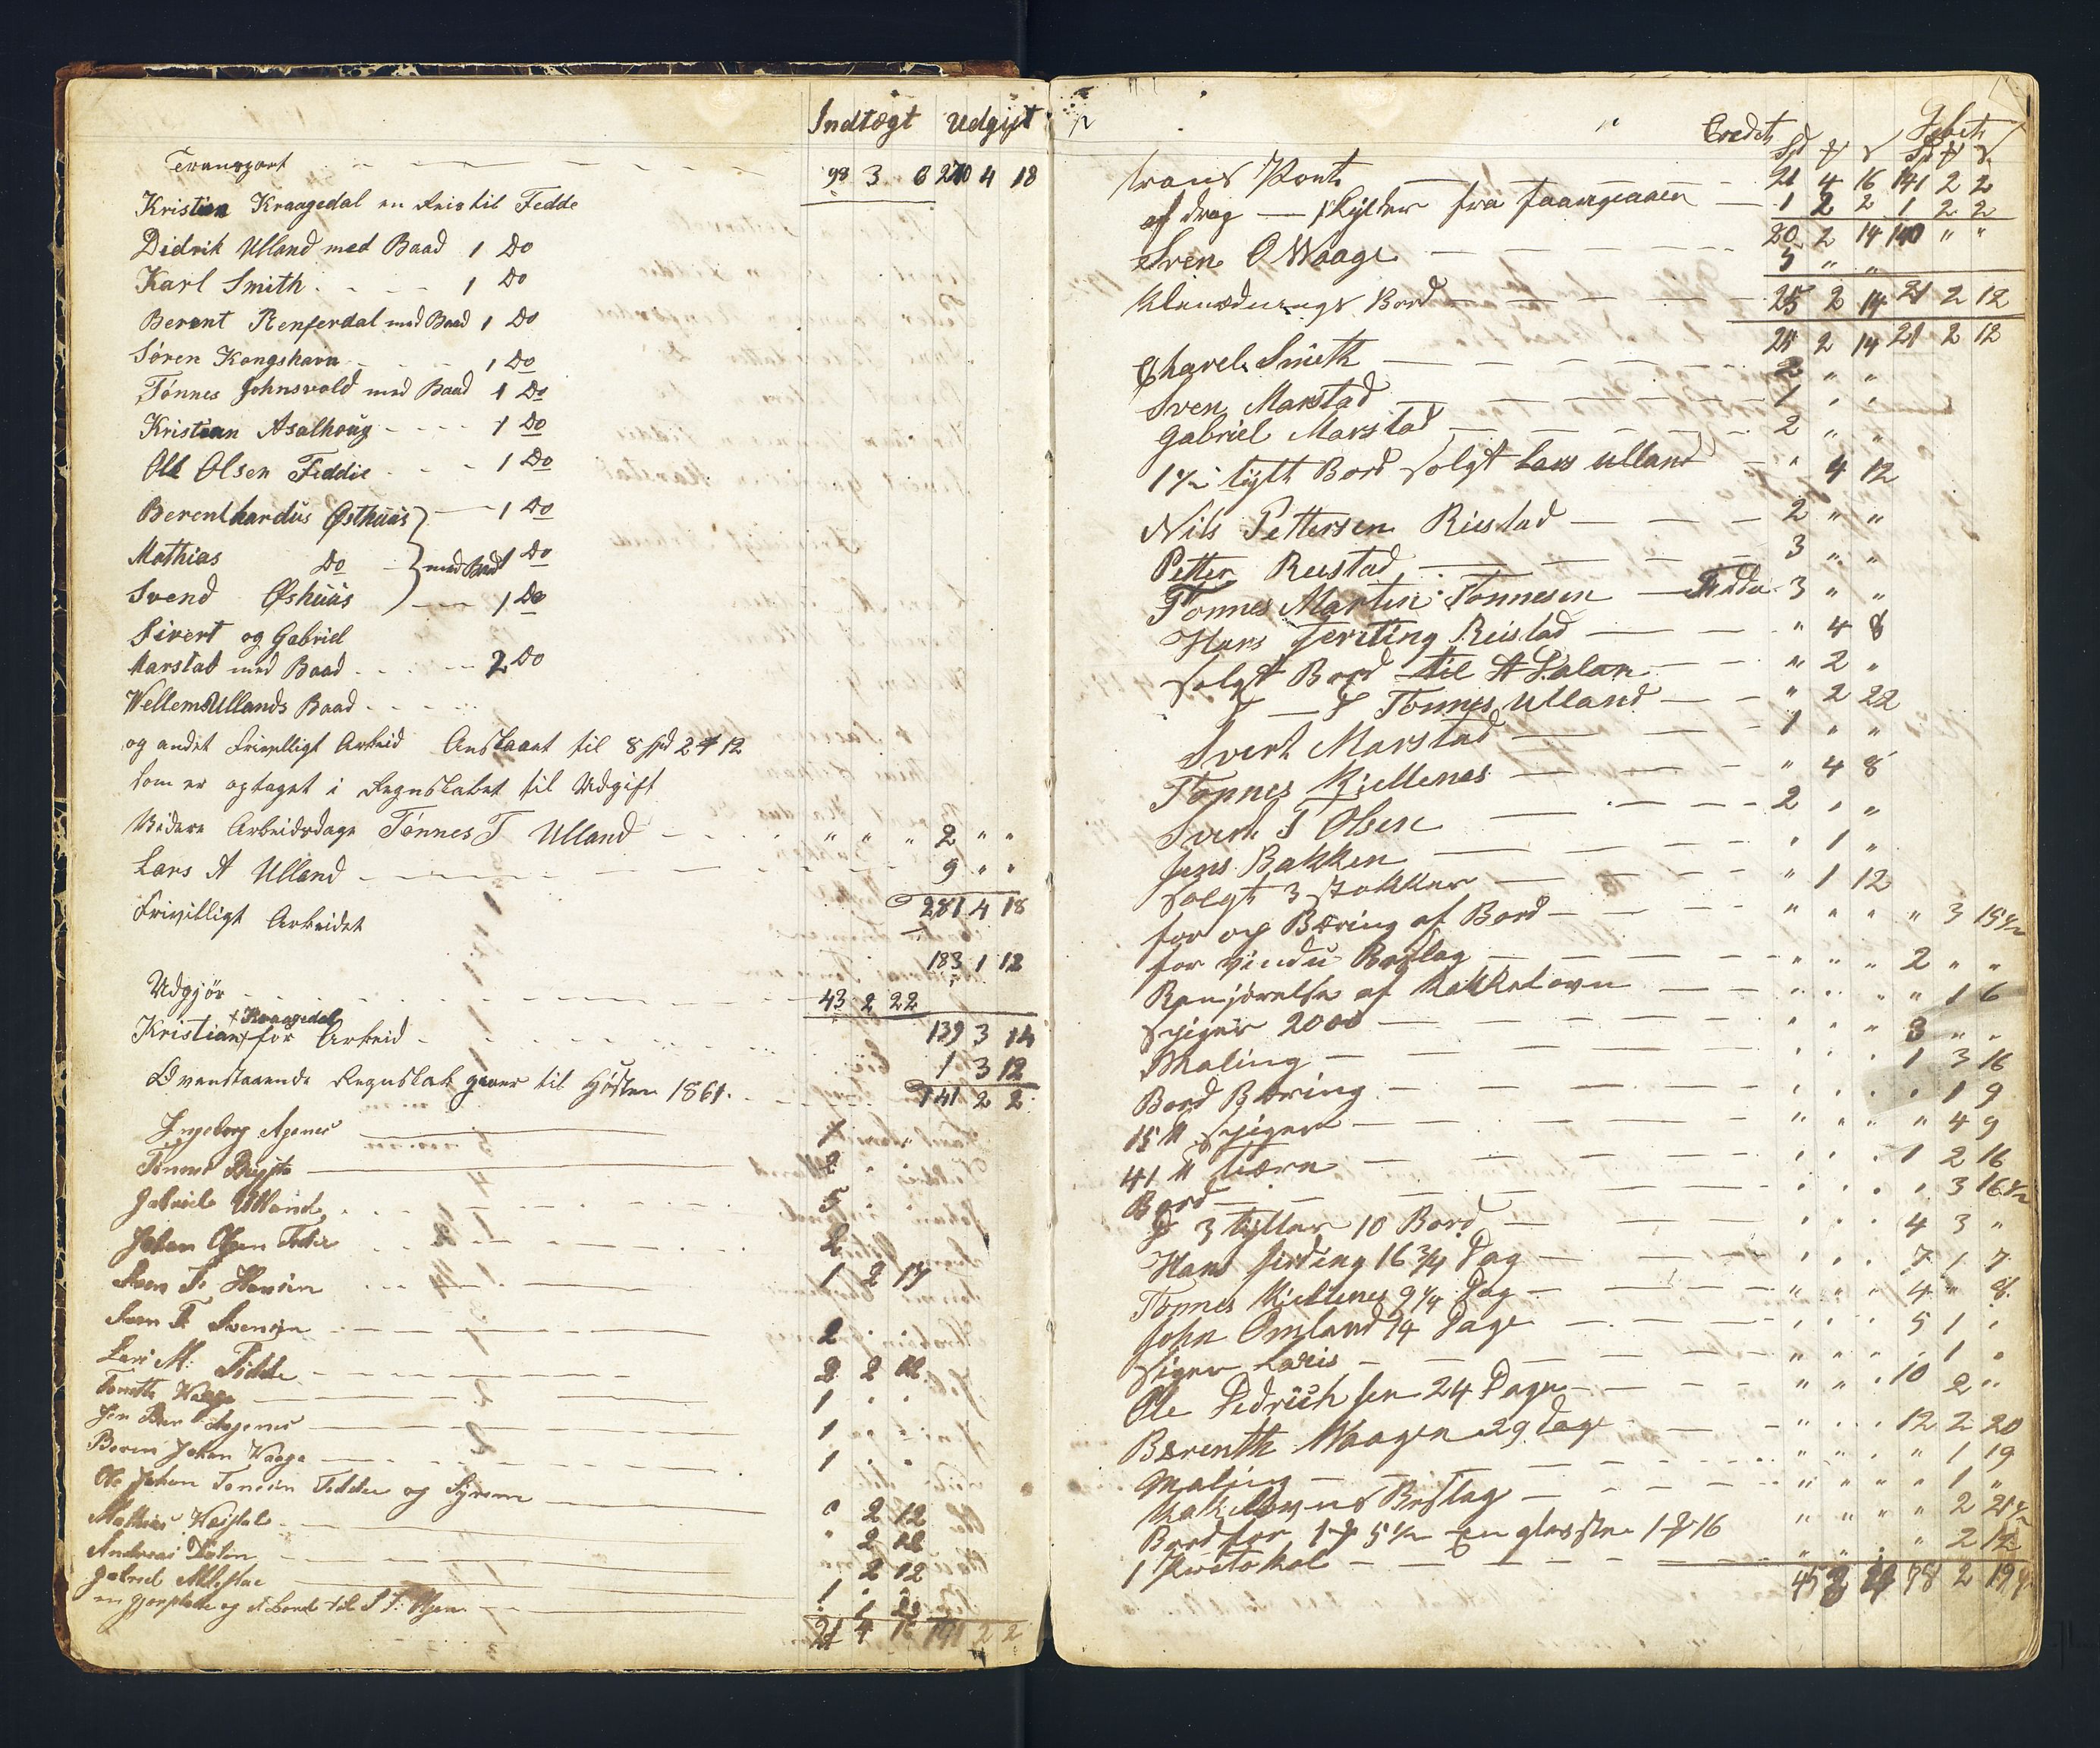 Indtægt Udgift
Transport 98 3 6 270 4 18
Kristian Kraagedal en Reis til Fedde
Didrik Ulland med Baad 1 Do
Karl Smith 1 Do
Berent Renferdal med Baad 1 Do
Søren Kongshavn 1 Do
Tønnes Johnsvold med Baad 1 Do
Kristian Asalhoug 1 Do
Ole Olsen Feddie 1 Do
Berenthardus Østhuus 1 Do
Mathias Do med Baad Do
Svend Øshuus 1 Do
Sivert og Gabriel
Marstad med Baad 2 Do
Wellem Ullands Baad
og andet Frivilligt Arbeid Anslaaet til 8 spd 2 # 12
som er optaget i Regnskabet til Udgift
Videre Arbeidsdage Tønnes T Ulland " " " 2 " "
Lars A Ulland 9 " "
281 4 18
Frivilligt Arbeidet
183 1 12
Udgjør 43 2 22
139 3 14
Kristian Kraagedal for Arbeid 1 3 12
Ovenstaaende Regnskab gaaer til Høsten 1861. 141 2 2
Ingeborg Agenes
Tønnes 2
Gabriel Ulland 5
Johan Olsen Fedde 2
Sven T. Hansen 1 2 17
Sven T. Svensen 2
Lars M. Fidde 2 2 12
Waage 1
Jen Ber Agenes 1
Beren Johan Waage 1
Ole Johan Tønesen Feddie og 2 12
Mathias 2 12
Andreas 2 12
Gabriel 1
og et Bord til S T. Olsen 1
21 4 16 141 2 2
Credet Debet
Spd # s Spd # s
trans Port 21 4 16 141 2 2
af drag — skylder fra 1 2 2 1 2 2
20 2 14 140 " "
Sven O Waage 5 " "
25 2 14 21 2 12
Klædnings Bord
25 2 14 21 2 12
Charel Smith 2 " "
Sven Marstad 1 " "
Gabriel Marstad 2 " "
1 1/2 tylt Bord solgt Lars Ulland " 4 12
Nils Pettersen Riestad 2 " "
Petter Reistad 3 " "
Tønnes Martin Tønnesen Fedde 3 " "
Hans Reistad " 4 8
Solgt Bord til A " 2 "
Tønnes Ulland " 2 22
Svert Marstad 1 " "
Tønnes Kiellenes " 4 8
Svert T Olsen 2 " "
Jens Bakken " 1 "
Solgt 3 stokker " 1 12
for op Bæring af Bord " " " " 3 15 1/2
for vindu Beslag " " " 2 " "
Renjørelse af Kakkelovn " " " " 1 6
spiger 2000 " " " 3 " "
Maling " " " 1 3 16
Bord Bæring " " " " 1 9
15 # spiger " " " " 4 9
41 # tiære " " " 1 2 16
Bord " " " " 3 16 1/2
3 tylter 10 Bord " " " 4 3 "
Hans 16 3/4 Dag " " " 7 1 7
Tønnes Kiellenes 9 1/4 Dag " " " 4 " 8
John Omland 14 Dage " " " 5 1 "
spiger " " " " 1 "
Ole Didrichsen 24 Dage " " " 10 2 "
Berenth Waagen 29 Dage " " " 12 2 20
Maling " " " " 1 19
Kakelovns Beslag " " " " 1 "
Bord for 1 # 5 1/2 En glas 1 # 16 " " " " 2 21 1/2
1 Protokol " " " " 2 12
78 2 19